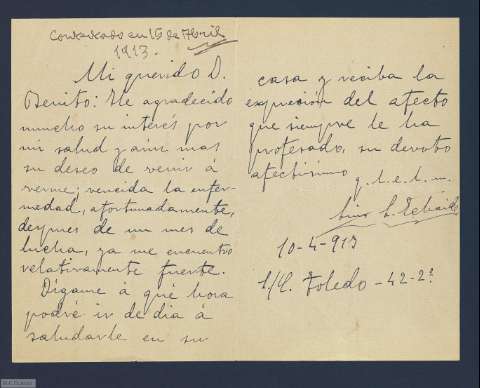 Contestado en 15 de Abril
1913.
Mi querido D.
Benito: He agradecido
mucho su interés por
mi salud y aún mas
su deseo de venir á
verme; vencida la enfer-
medad, afortunadamente,
despues de un mes de
lucha, ya me encuentro
relativamente fuerte.
Digame á qué hora
podré ir de dia á
saludarle en su
casa y reciba la
expresión del afecto
que siempre le ha
profesado, su devoto
afectísimo
q. b. s. m.
10-4-913
Toledo - 42-2º